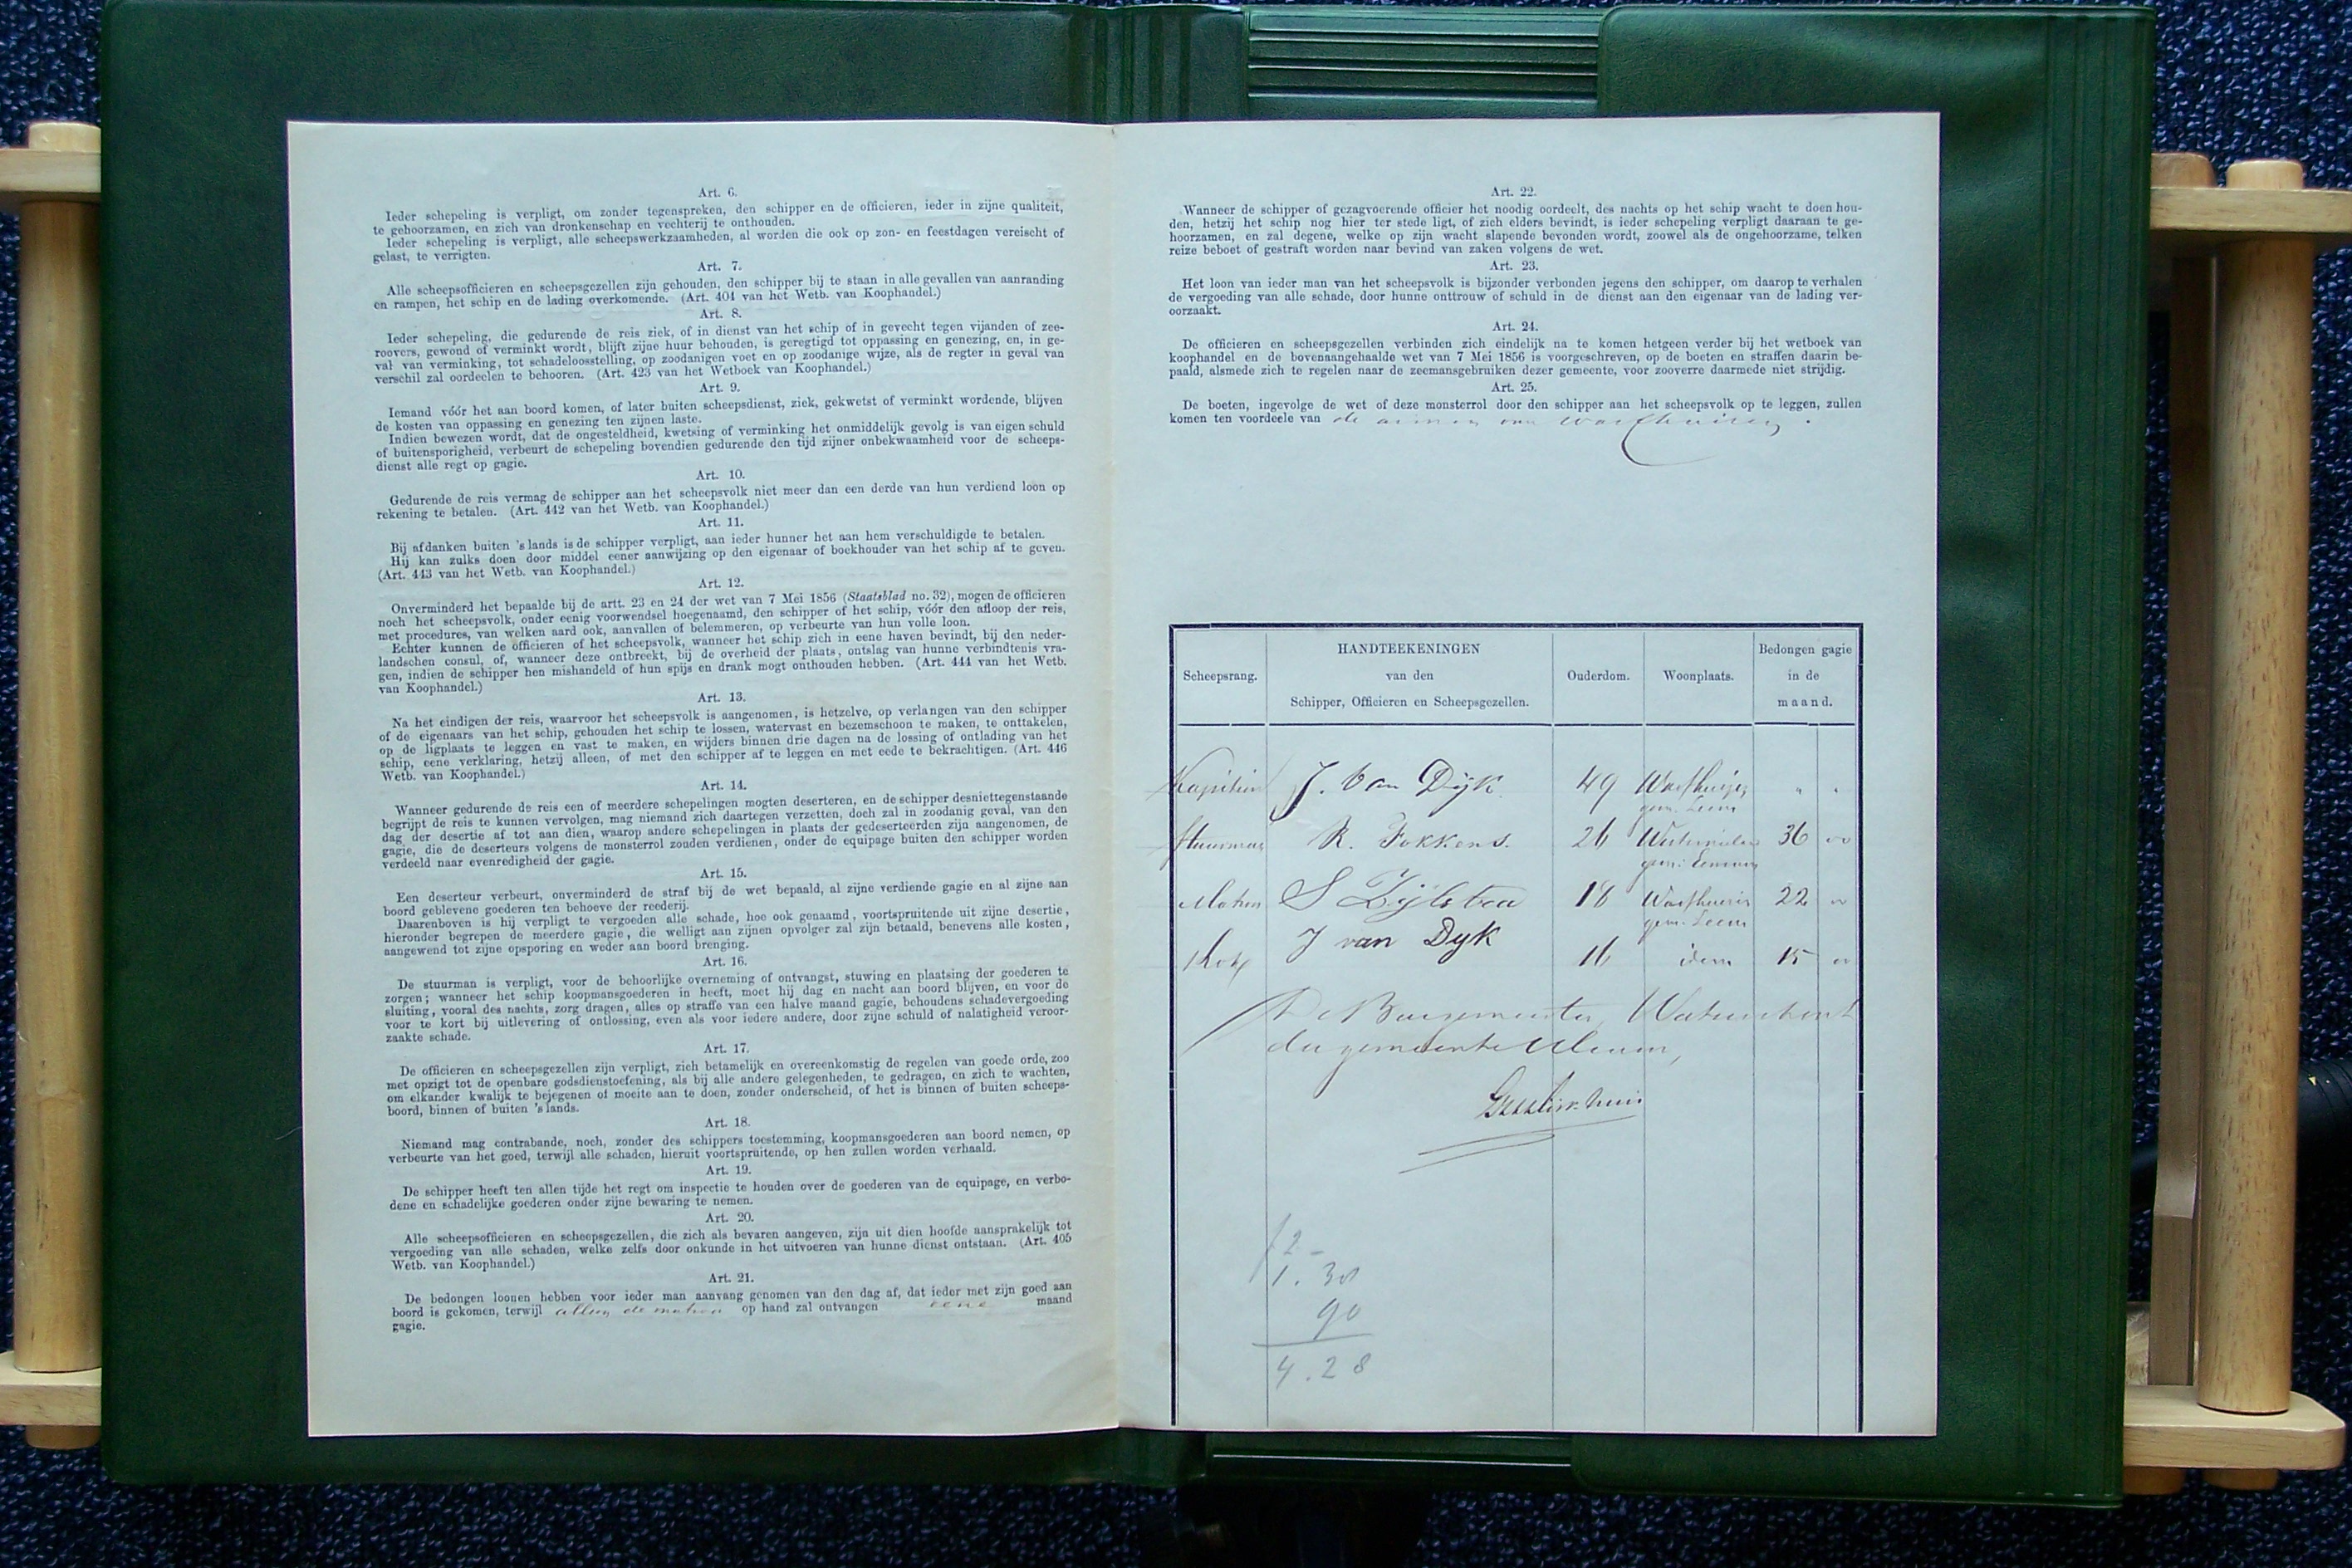 Art. 6.
Ieder schepeling is verpligt, om zonder tegenspreken, den schipper en de officieren, ieder in zijne qualiteit,
te gehoorzamen, en zich van dronkenschap en vechterij te onthouden.
Ieder schepeling is verpligt, alle scheepswerkzaamheden, al worden die ook op zon- en feestdagen vereischt of
gelast, te verrigten.
Art. 7.
Alle scheepsofficieren en scheepsgezellen zijn gehouden, den schipper bij te staan in alle gevallen van aanranding
en rampen, het schip en de lading overkomende. (Art. 401 van het Wetb. van Koophandel.)
Art. 8.
Ieder schepeling, die gedurende de reis ziek, of in dienst van het schip of in gevecht tegen vijanden of zee-
roovers, gewond of verminkt wordt, blijft zijne huur behouden, is geregtigd tot oppassing en genezing, en, in ge-
val van verminking, tot schadeloosstelling, op zoodanigen voet en op zoodanige wijze, als de regter in geval van
verschil zal oordeelen te behooren. (Art. 423 van het Wetboek van Koophandel.)
Art. 9.
Iemand vóór het aan boord komen, of later buiten scheepsdienst, ziek, gekwetst of verminkt wordende, blijven
de kosten van oppassing en genezing ten zijnen laste.
Indien bewezen wordt, dat de ongesteldheid, kwetsing of verminking het onmiddelijk gevolg is van eigen schuld
of buitensporigheid, verbeurt de schepeling bovendien gedurende den tijd zijner onbekwaamheid voor de scheeps-
dienst alle regt op gagie.
Art. 10.
Gedurende de reis vermag de schipper aan het scheepsvolk niet meer dan een derde van hun verdiend loon op
rekening te betalen. (Art. 442 van het Wetb. van Koophandel.)
Art. 11.
Bij afdanken buiten 's lands is de schipper verpligt, aan ieder hunner het aan hem verschuldigde te betalen.
Hij kan zulks doen door middel eener aanwijzing op den eigenaar of boekhouder van het schip af te geven.
(Art. 443 van het Wetb. van Koophandel.)
Art. 12.
Onverminderd het bepaalde bij de artt. 23 en 24 der wet van 7 Mei 1856 (Staatsblad no. 32), mogen de officieren
noch het scheepsvolk, onder eenig voorwendsel hoegenaamd, den schipper of het schip, vóór den afloop der reis,
met procedures, van welken aard ook, aanvallen of belemmeren, op verbeurte van hun volle loon.
Echter kunnen de officieren of het scheepsvolk, wanneer het schip zich in eene haven bevindt, bij den neder-
landschen consul, of, wanneer deze ontbreekt, bij de overheid der plaats, ontslag van hunne verbindtenis vra-
gen, indien de schipper hen mishandeld of hun spijs en drank mogt onthouden hebben. (Art. 444 van het Wetb.
van Koophandel.)
Art. 13.
Na het eindigen der reis, waarvoor het scheepsvolk is aangenomen, is hetzelve, op verlangen van den schipper
of de eigenaars van het schip, gehouden het schip te lossen, watervast en bezemschoon te maken, te onttakelen,
op de ligplaats te leggen en vast te maken, en wijders binnen drie dagen na de lossing of ontlading van het
schip, eene verklaring, hetzij alleen, of met den schipper af te leggen en met eede te bekrachtigen. (Art. 446
Wetb. van Koophandel.)
Art. 14.
Wanneer gedurende de reis een of meerdere schepelingen mogten deserteren, en de schipper desniettegenstaande
begrijpt de reis te kunnen vervolgen, mag niemand zich daartegen verzetten, doch zal in zoodanig geval, van den
dag der desertie af tot aan dien, waarop andere schepelingen in plaats der gedeserteerden zijn aangenomen, de
gagie, die de deserteurs volgens de monsterrol zouden verdienen, onder de equipage buiten den schipper worden
verdeeld naar evenredigheid der gagie.
Art. 15.
Een deserteur verbeurt, onverminderd de straf bij de wet bepaald, al zijne verdiende gagie en al zijne aan
boord geblevene goederen ten behoeve der reederij.
Daarenboven is hij verpligt te vergoeden alle schade, hoe ook genaamd, voortspruitende uit zijne desertie,
hieronder begrepen de meerdere gagie, die welligt aan zijnen opvolger zal zijn betaald, benevens alle kosten,
aangewend tot zijne opsporing en weder aan boord brenging.
Art. 16.
De stuurman is verpligt, voor de behoorlijke overneming of ontvangst, stuwing en plaatsing der goederen te
zorgen; wanneer het schip koopmansgoederen in heeft, moet hij dag en nacht aan boord blijven, en voor de
sluiting, vooral des nachts, zorg dragen, alles op straffe van een halve maand gagie, behoudens schadevergoeding
voor te kort bij uitlevering of ontlossing, even als voor iedere andere, door zijne schuld of nalatigheid veroor-
zaakte schade.
Art. 17.
De officieren en scheepsgezellen zijn verpligt, zich betamelijk en overeenkomstig de regelen van goede orde, zoo
met opzigt tot de openbare godsdienstoefening, als bij alle andere gelegenheden, te gedragen, en zich te wachten,
om elkander kwalijk te bejegenen of moeite aan te doen, zonder onderscheid, of het is binnen of buiten scheeps-
boord, binnen of buiten 's lands.
Art. 18.
Niemand mag contrabande, noch, zonder des schippers toestemming, koopmansgoederen aan boord nemen, op
verbeurte van het goed, terwijl alle schaden, hieruit voortspruitende, op hen zullen worden verhaald.
Art. 19.
De schipper heeft ten allen tijde het regt om inspectie te houden over de goederen van de equipage, en verbo-
dene en schadelijke goederen onder zijne bewaring te nemen.
Art. 20.
Alle scheepsofficieren en scheepsgezellen, die zich als bevaren aangeven, zijn uit dien hoofde aansprakelijk tot
vergoeding van alle schaden, welke zelfs door onkunde in het uitvoeren van hunne dienst ontstaan. (Art. 405
Wetb. van Koophandel.)
Art. 21.
De bedongen loonen hebben voor ieder man aanvang genomen van den dag af, dat ieder met zijn goed aan
boord is gekomen, terwijl alleen de matroos op hand zal ontvangen eene maand
gagie.
Art. 22.
Wanneer de schipper of gezagvoerende officier het noodig oordeelt, des nachts op het schip wacht te doen hou-
den, hetzij het schip nog hier ter stede ligt, of zich elders bevindt, is ieder schepeling verpligt daaraan te ge-
hoorzamen, en zal degene, welke op zijn wacht slapende bevonden wordt, zoowel als de ongehoorzame, telken
reize beboet of gestraft worden naar bevind van zaken volgens de wet.
Art. 23.
Het loon van ieder man van het scheepsvolk is bijzonder verbonden jegens den schipper, om daarop te verhalen
de vergoeding van alle schade, door hunne onttrouw of schuld in de dienst aan den eigenaar van de lading ver-
oorzaakt.
Art. 24.
De officieren en scheepsgezellen verbinden zich eindelijk na te komen hetgeen verder bij het wetboek van
koophandel en de bovenaangehaalde wet van 7 Mei 1856 is voorgeschreven, op de boeten en straffen daarin be-
paald, alsmede zich te regelen naar de zeemansgebruiken dezer gemeente, voor zooverre daarmede niet strijdig.
Art. 25.
De boeten, ingevolge de wet of deze monsterrol door den schipper aan het scheepsvolk op te leggen, zullen
komen ten voordeele van de armen van Warfhuizen.
Scheepsrang. HANDTEEKENINGEN van den Schipper, Officieren en Scheepsgezellen. Ouderdom. Woonplaats. Bedongen gagie in de maand.
Kapitein J. Van Dijk 49 Warfhuizen " "
gem. Leens
Stuurman R. Fokkens. 26 36 00
Matroos S Zijlstra 18 Warfhuizen 22 00
gem. Leens
Kok J van Dyk 16 idem 15 00
De Burgemeester, Waterschout
der gemeente Uleum,
12 -
1.38
90
4.28